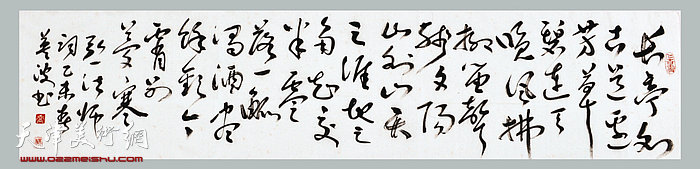 长亭外
古道边
芳草
碧连天
晚风拂
柳笛声
残夕阳
山外山天
之涯地之
角知交
半零
落一瓢
浊酒尽
余欢今
宵别
梦寒
弘一法师
词乙未春
書
天津美術網
www.022meishu.com